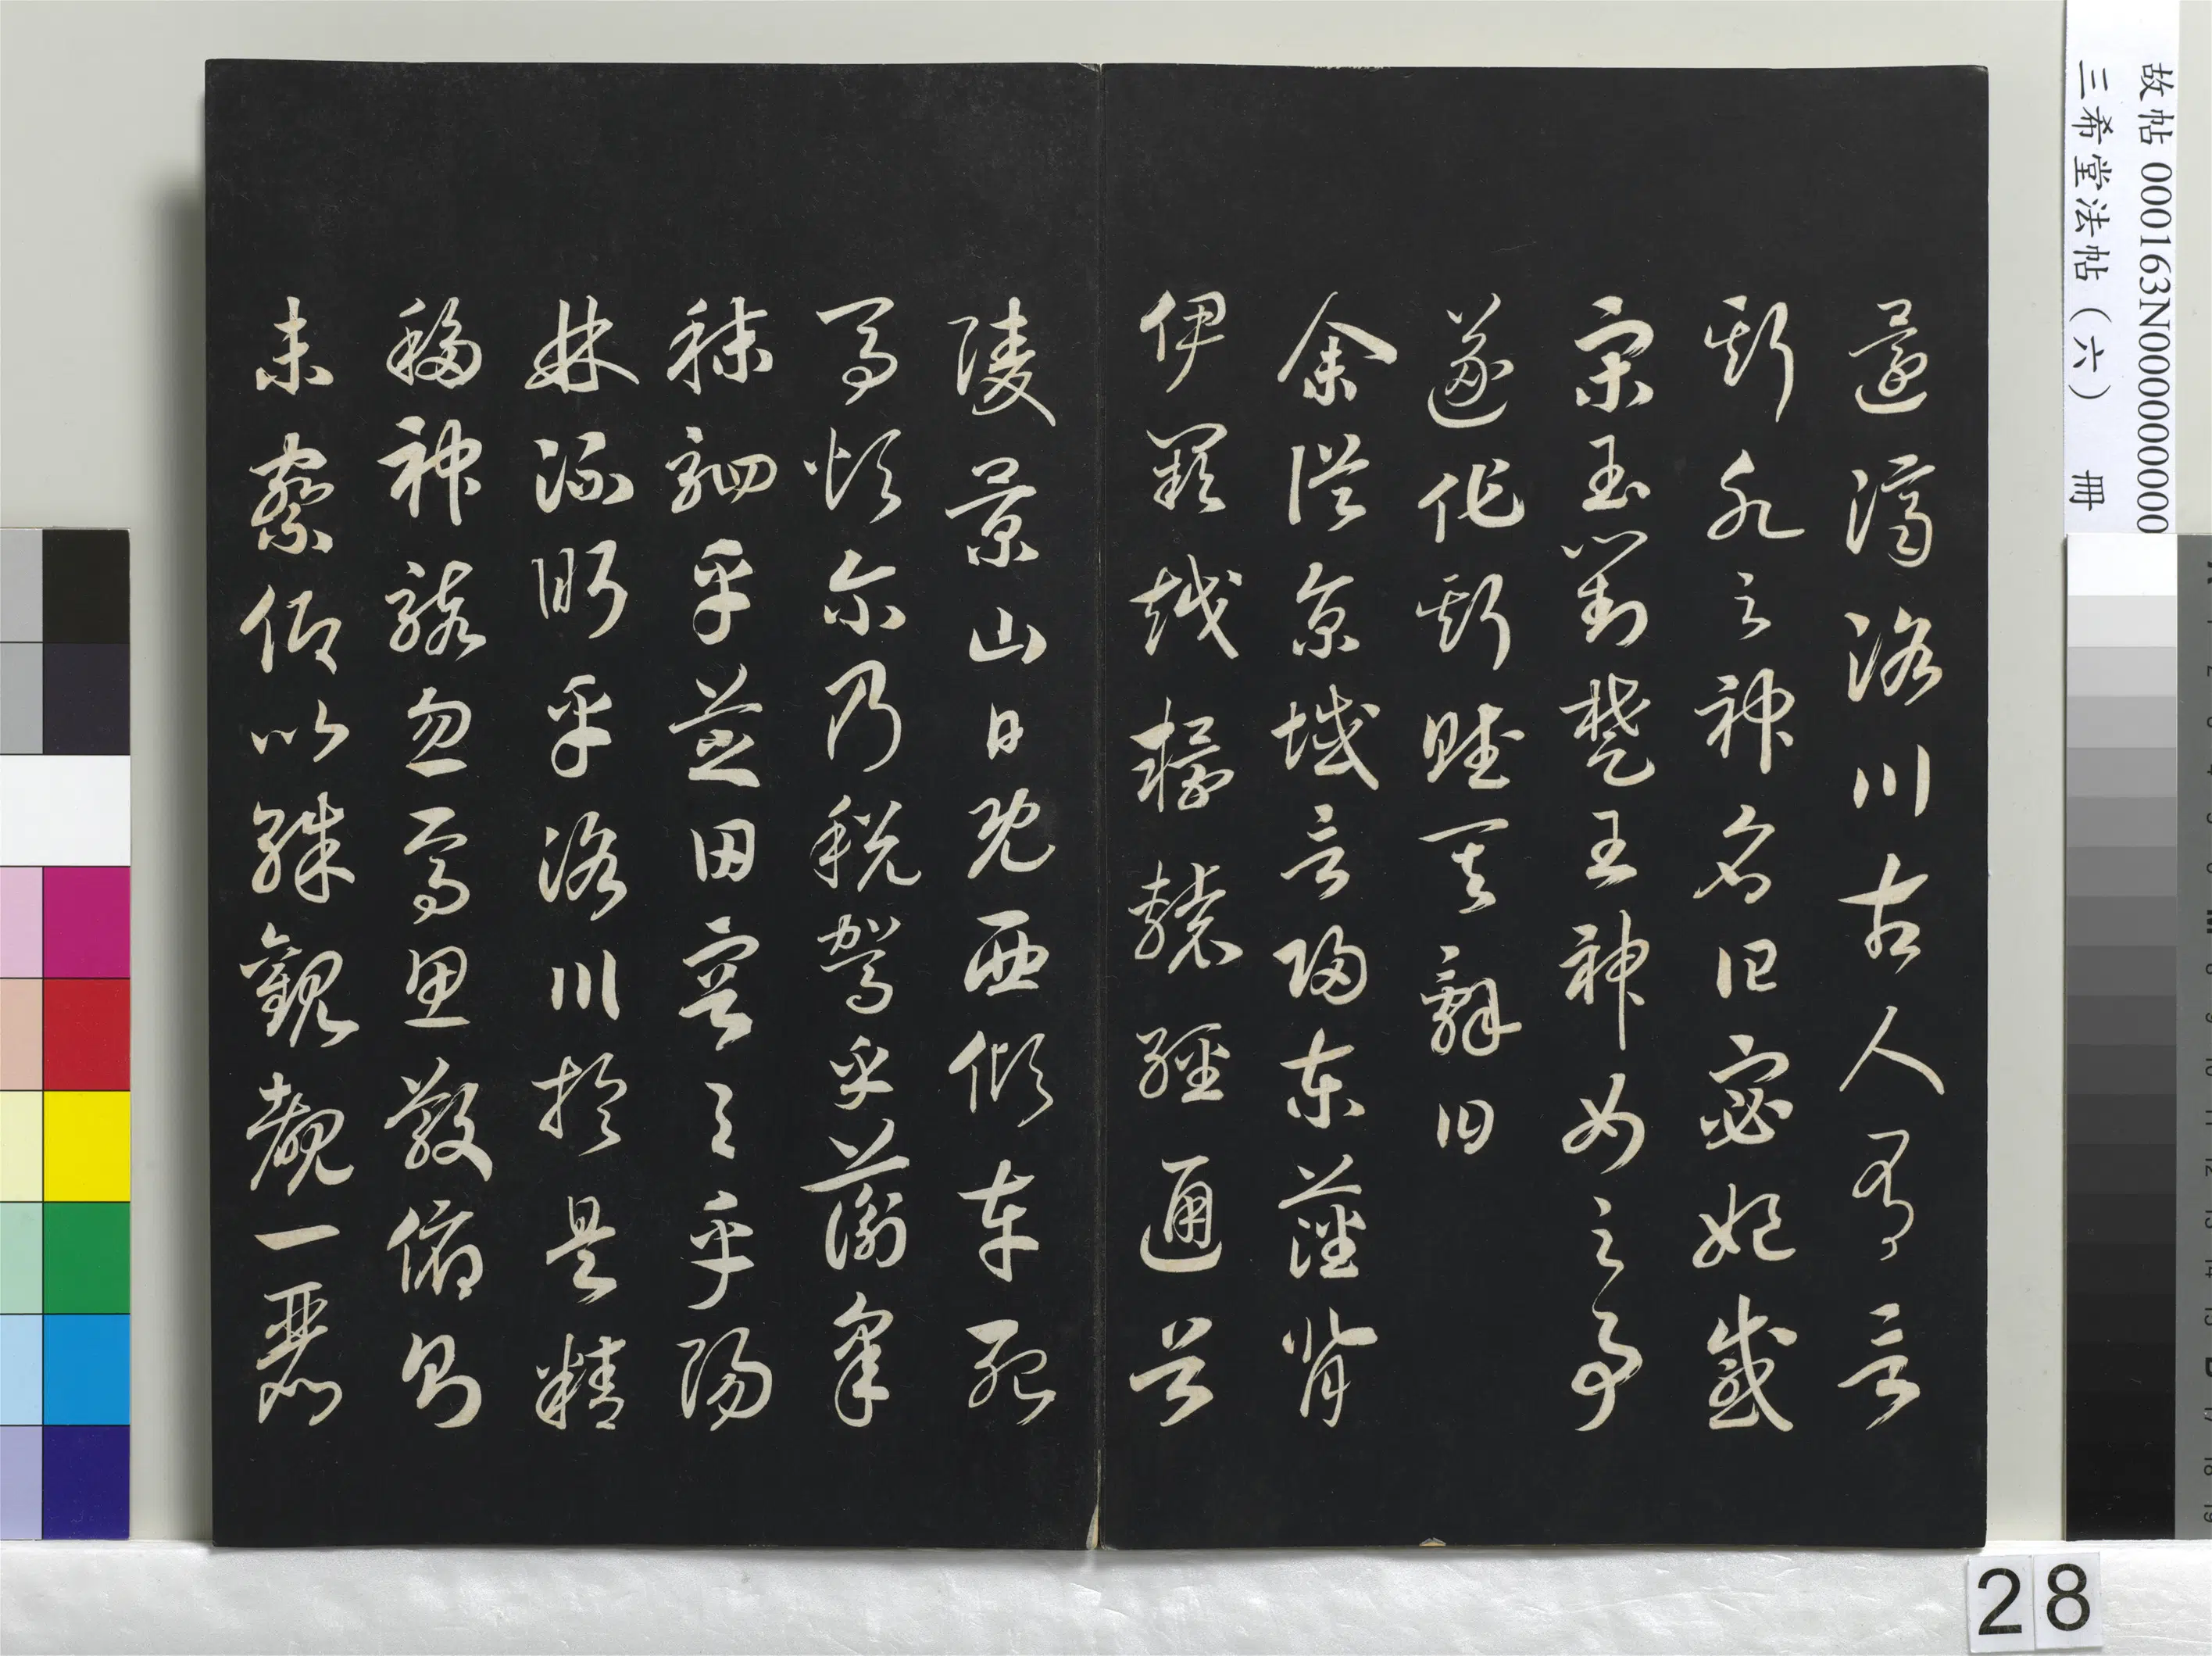 還濟洛川古人有言
斯水之神名曰宓妃感
宋玉對楚王神女之事
遂作斯賦其辭曰
余從京域言歸東藩背
伊闕越轘轅經通谷
陵景山日既西傾車殆
馬煩尔乃稅駕乎蘅皋
秣駟乎芝田容与乎陽
林流眄乎洛川於是精
移神駭忽焉思散俯則
未察仰以殊觀覩一麗
故帖 000163N000000000
三希堂法帖（六） 冊
28